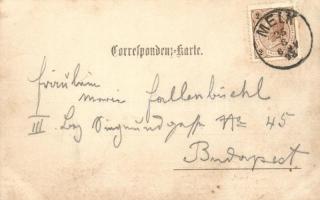 MELK
Correspondenz-Karte.
Fräulein
Marie Fallenbüchl
III. Bez Sigmundgasse No 45
Budapest.